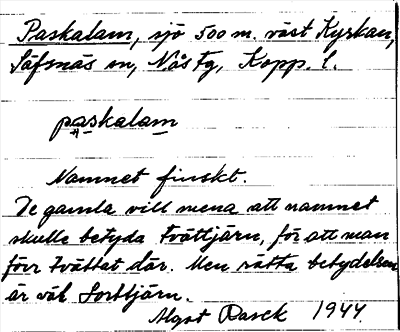 Paskalam, sjö 500 m. väst Kyrkan,
Säfsnäs sn, Nås tg, Kopp. l.
paskalam
Namnet finskt.
De gamla vill mena att namnet
skulle betyda Tvättjärn, för att man
förr tvättat där. Men rätta betydelsen
är väl Lorttjärn.
Algot Rasck 1944